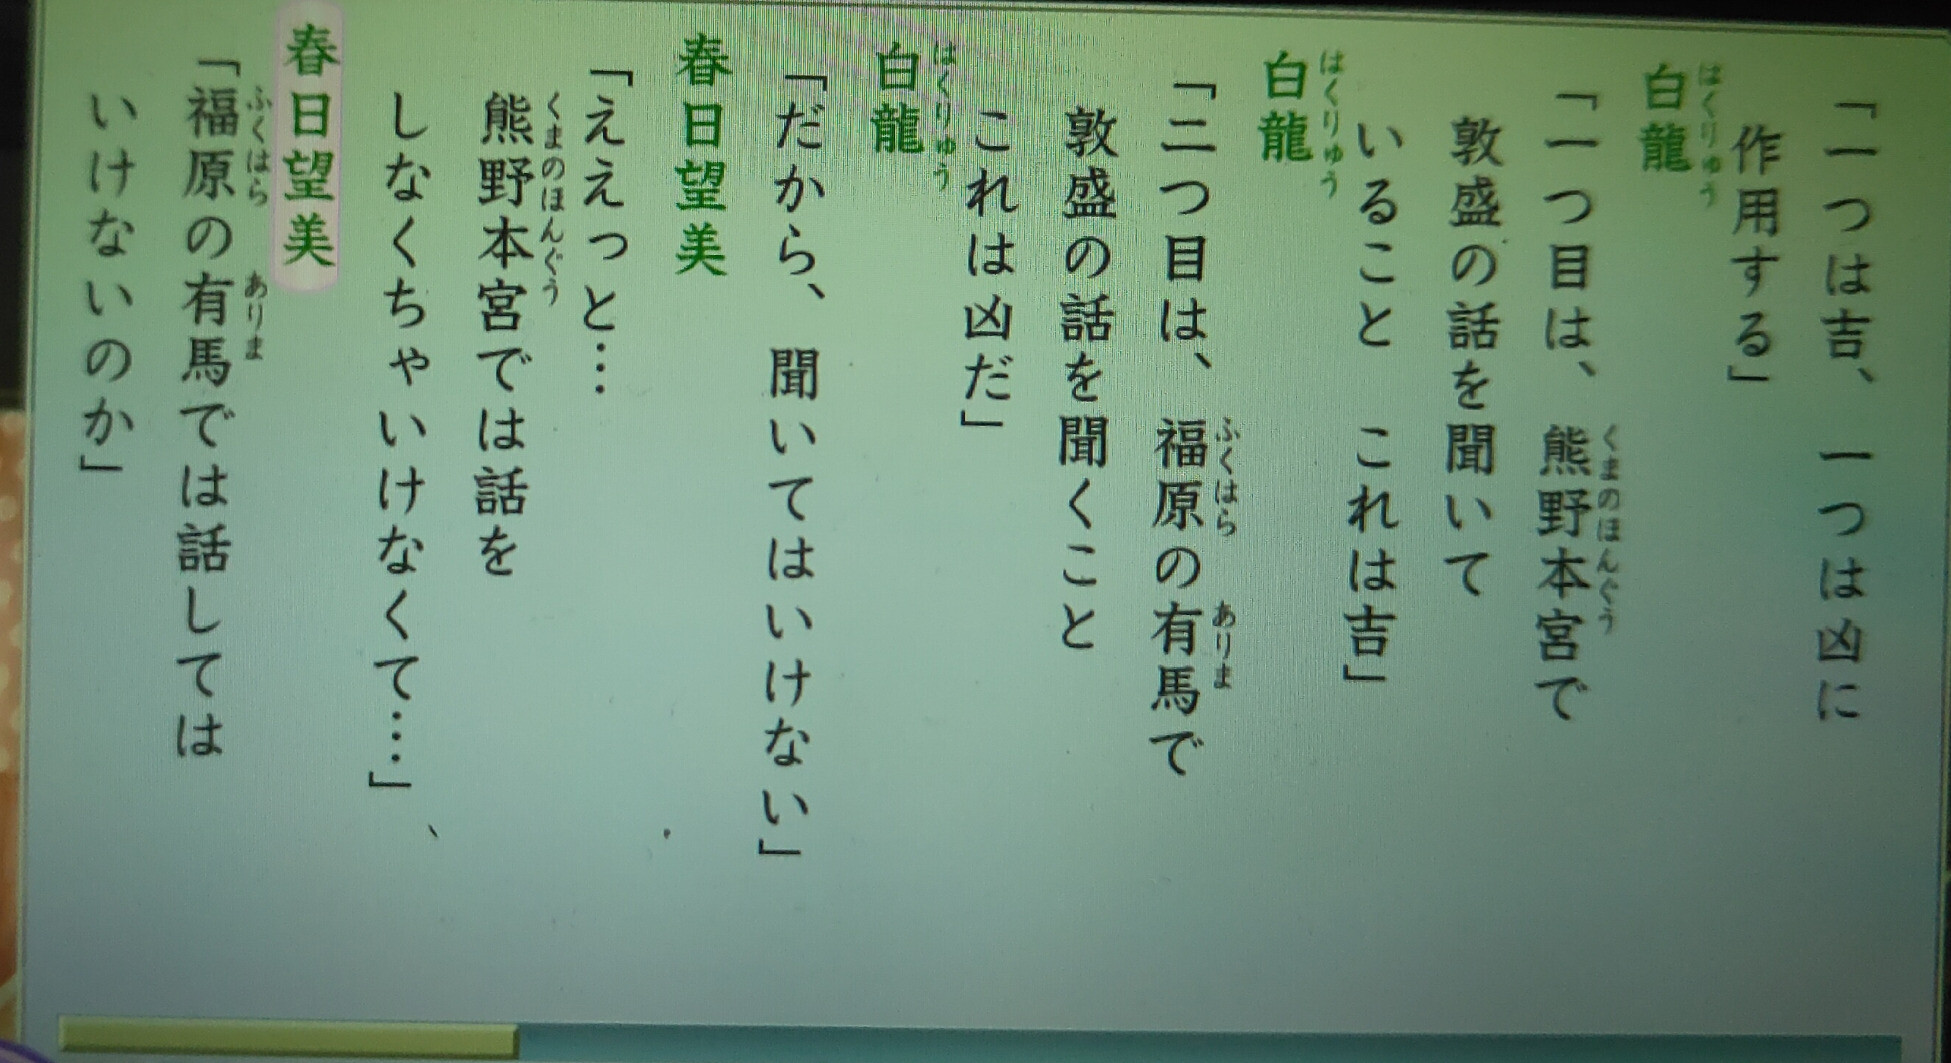 「一つは吉、一つは凶に
作用する」
白龍
はくりゅう
「一つ目は、熊野本宮で
くまのほんぐう
敦盛の話を聞いて
いること　これは吉」
白龍
はくりゅう
「二つ目は、福原の有馬で
ふくはら ありま
敦盛の話を聞くこと
これは凶だ」
白龍
はくりゅう
「だから、聞いてはいけない」
春日望美
「ええっと…
熊野本宮では話を
くまのほんぐう
しなくちゃいけなくて…」
春日望美
「福原の有馬では話しては
ふくはら ありま
いけないのか」